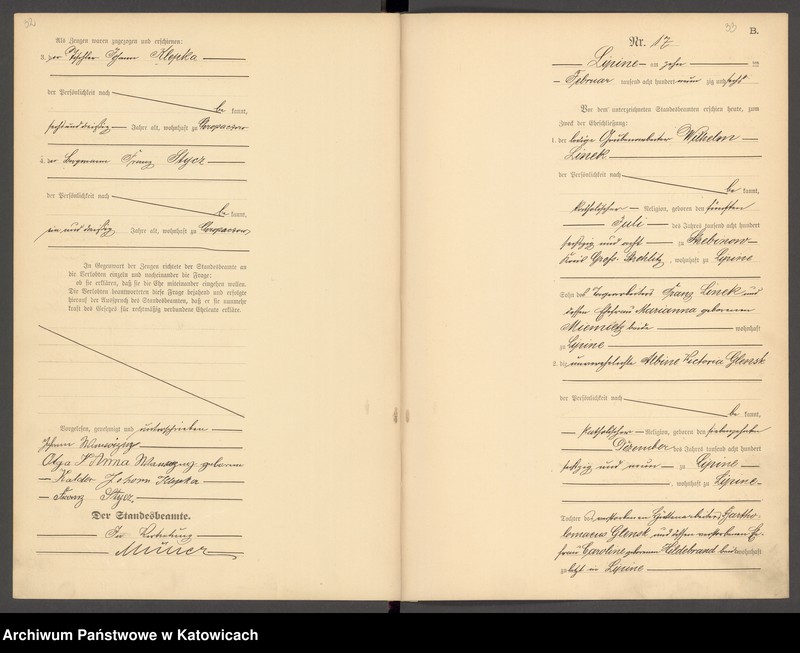 52
Als Zeugen waren zugezogen und erschienen:
3. der Tischler Johann Klepka
der Persönlichkeit nach
be kannt,
sechsunddreißig Jahre alt, wohnhaft zu Chropaczow
4. der Bergmann Franz Stycz
der Persönlichkeit nach
be kannt,
ein und dreißig Jahre alt, wohnhaft zu Chropaczow
In Gegenwart der Zeugen richtete der Standesbeamte an
die Verlobten einzeln und nacheinander die Frage:
ob sie erklären, daß sie die Ehe miteinander eingehen wollen.
Die Verlobten beantworteten diese Frage bejahend und erfolgte
hierauf der Ausspruch des Standesbeamten, daß er sie nunmehr
kraft des Gesetzes für rechtmäßig verbundene Eheleute erkläre.
Vorgelesen, genehmigt und unterschrieben
Johann
Olga Anna geborene
Johann Klepka
Franz Stycz
Der Standesbeamte.
In Vertretung
Müller
53
B.
Nr. 17
Lipine am zehn ten
Februar tausend acht hundert neun zig und sechs
Vor dem unterzeichneten Standesbeamten erschien heute, zum
Zweck der Eheschließung:
1. der ledige Grubenarbeiter Wilhelm
Linek
der Persönlichkeit nach
be kannt,
katholischer Religion, geboren den fünften
Juli des Jahres tausend acht hundert
sechszig und acht zu
Kreis Groß Strehlitz, wohnhaft zu Lipine
Sohn des Franz Linek und
dessen Ehefrau Marianna geborenen
beide wohnhaft
zu Lipine
2. die unverehelichte Albine Victoria Glensk
der Persönlichkeit nach
be kannt,
katholischer Religion, geboren den siebenzehnten
Dezember des Jahres tausend acht hundert
sechszig und neun zu Lipine
, wohnhaft zu Lipine
Tochter des verstorbenen Hüttenarbeiters Bartho-
lomaeus Glensk und dessen verstorbenen Ehe-
frau Caroline geborenen Hildebrand beide wohnhaft
zuletzt in Lipine
Archiwum Państwowe w Katowicach